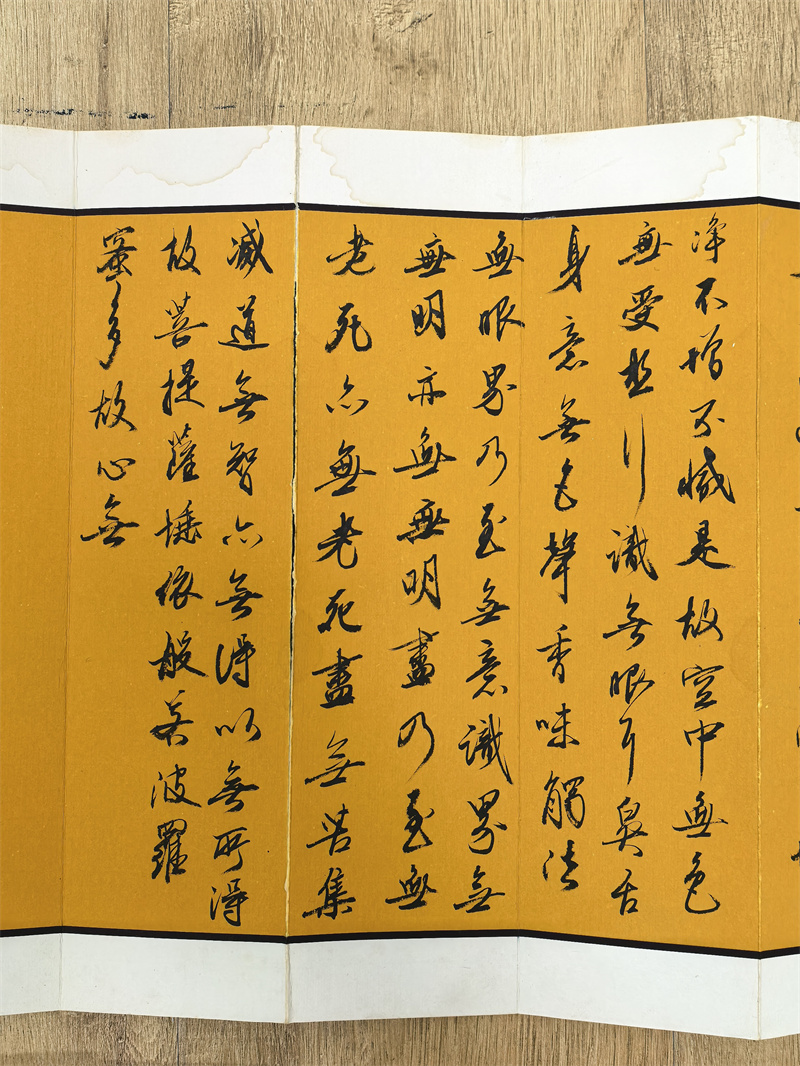 淨不增不減是故空中無色
無受想行識無眼耳鼻舌
身意無色聲香味觸法
無眼界乃至無意識界無
無明亦無無明盡乃至無
老死亦無老死盡無苦集
滅道無智亦無得以無所得
故菩提薩埵依般若波羅
蜜多故心無